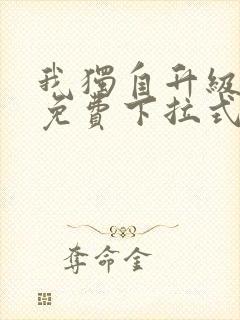 我獨自升級
免費下拉式
奪命金